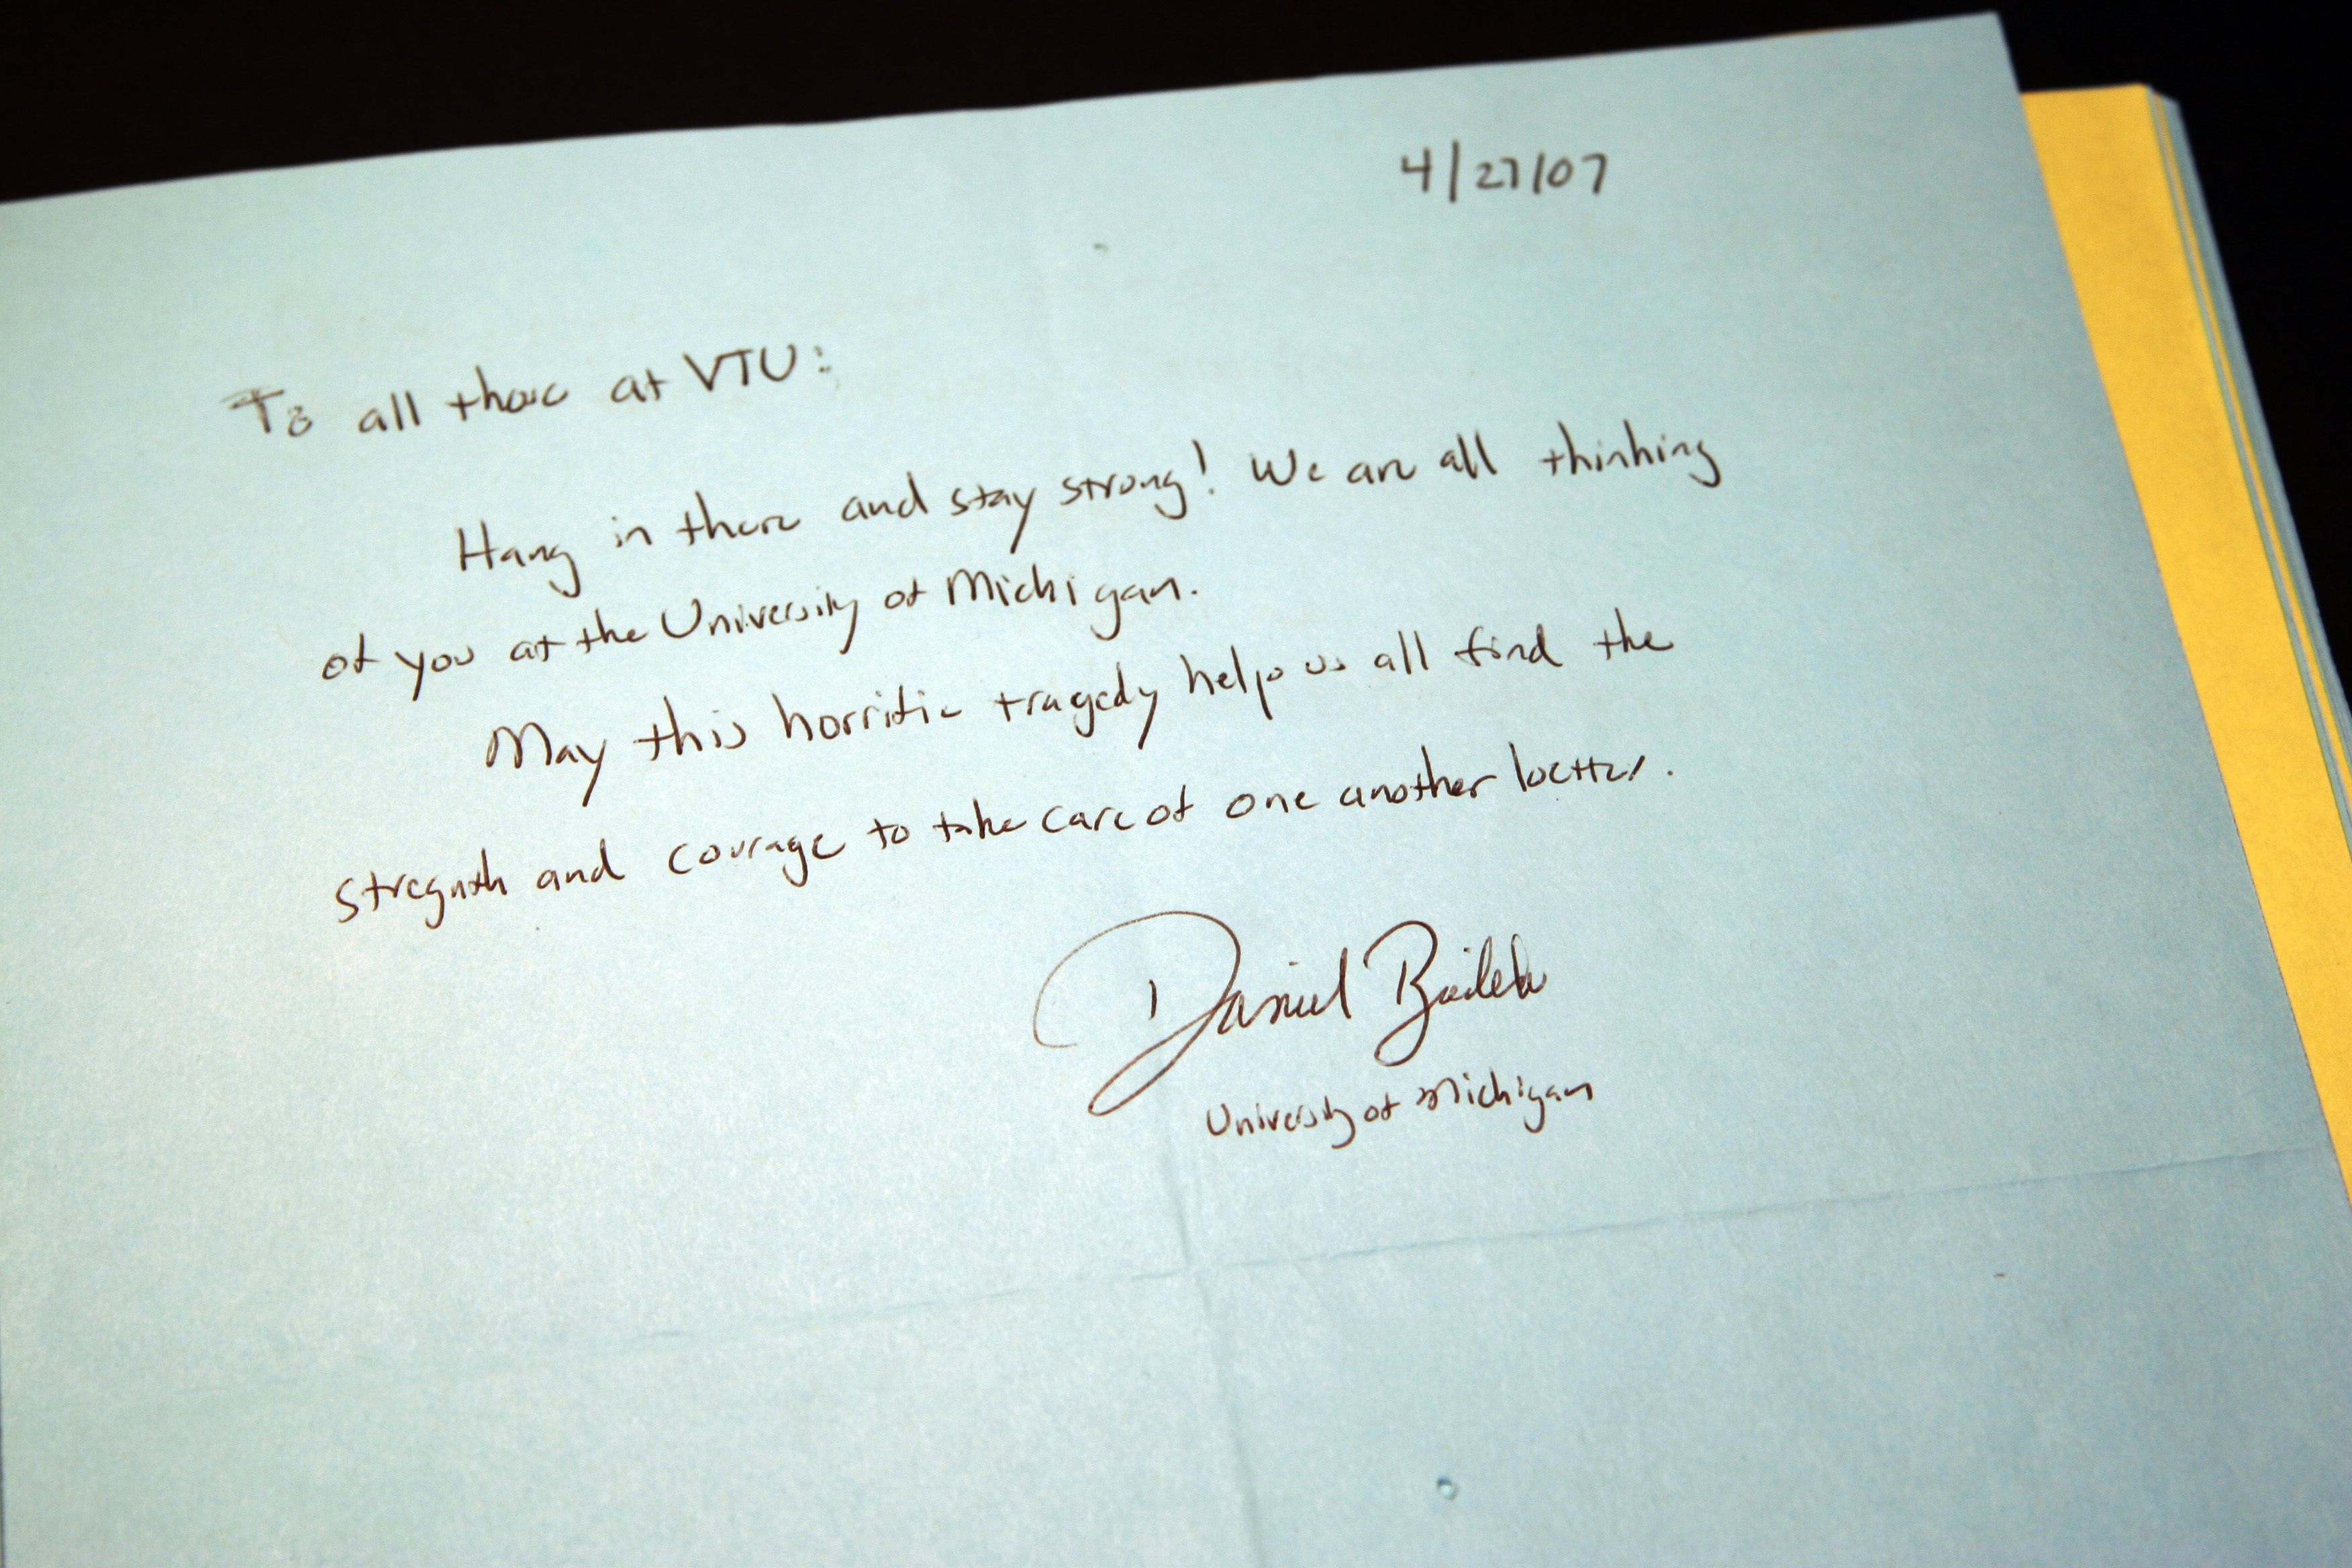 4/27/07
To all those at VTU:
Hang in there and stay strong! We are all thinking
of you at the University of Michigan.
May this horrific tragedy help us all find the
stregnth and courage to take care of one another better.
Daniel
University of Michigan